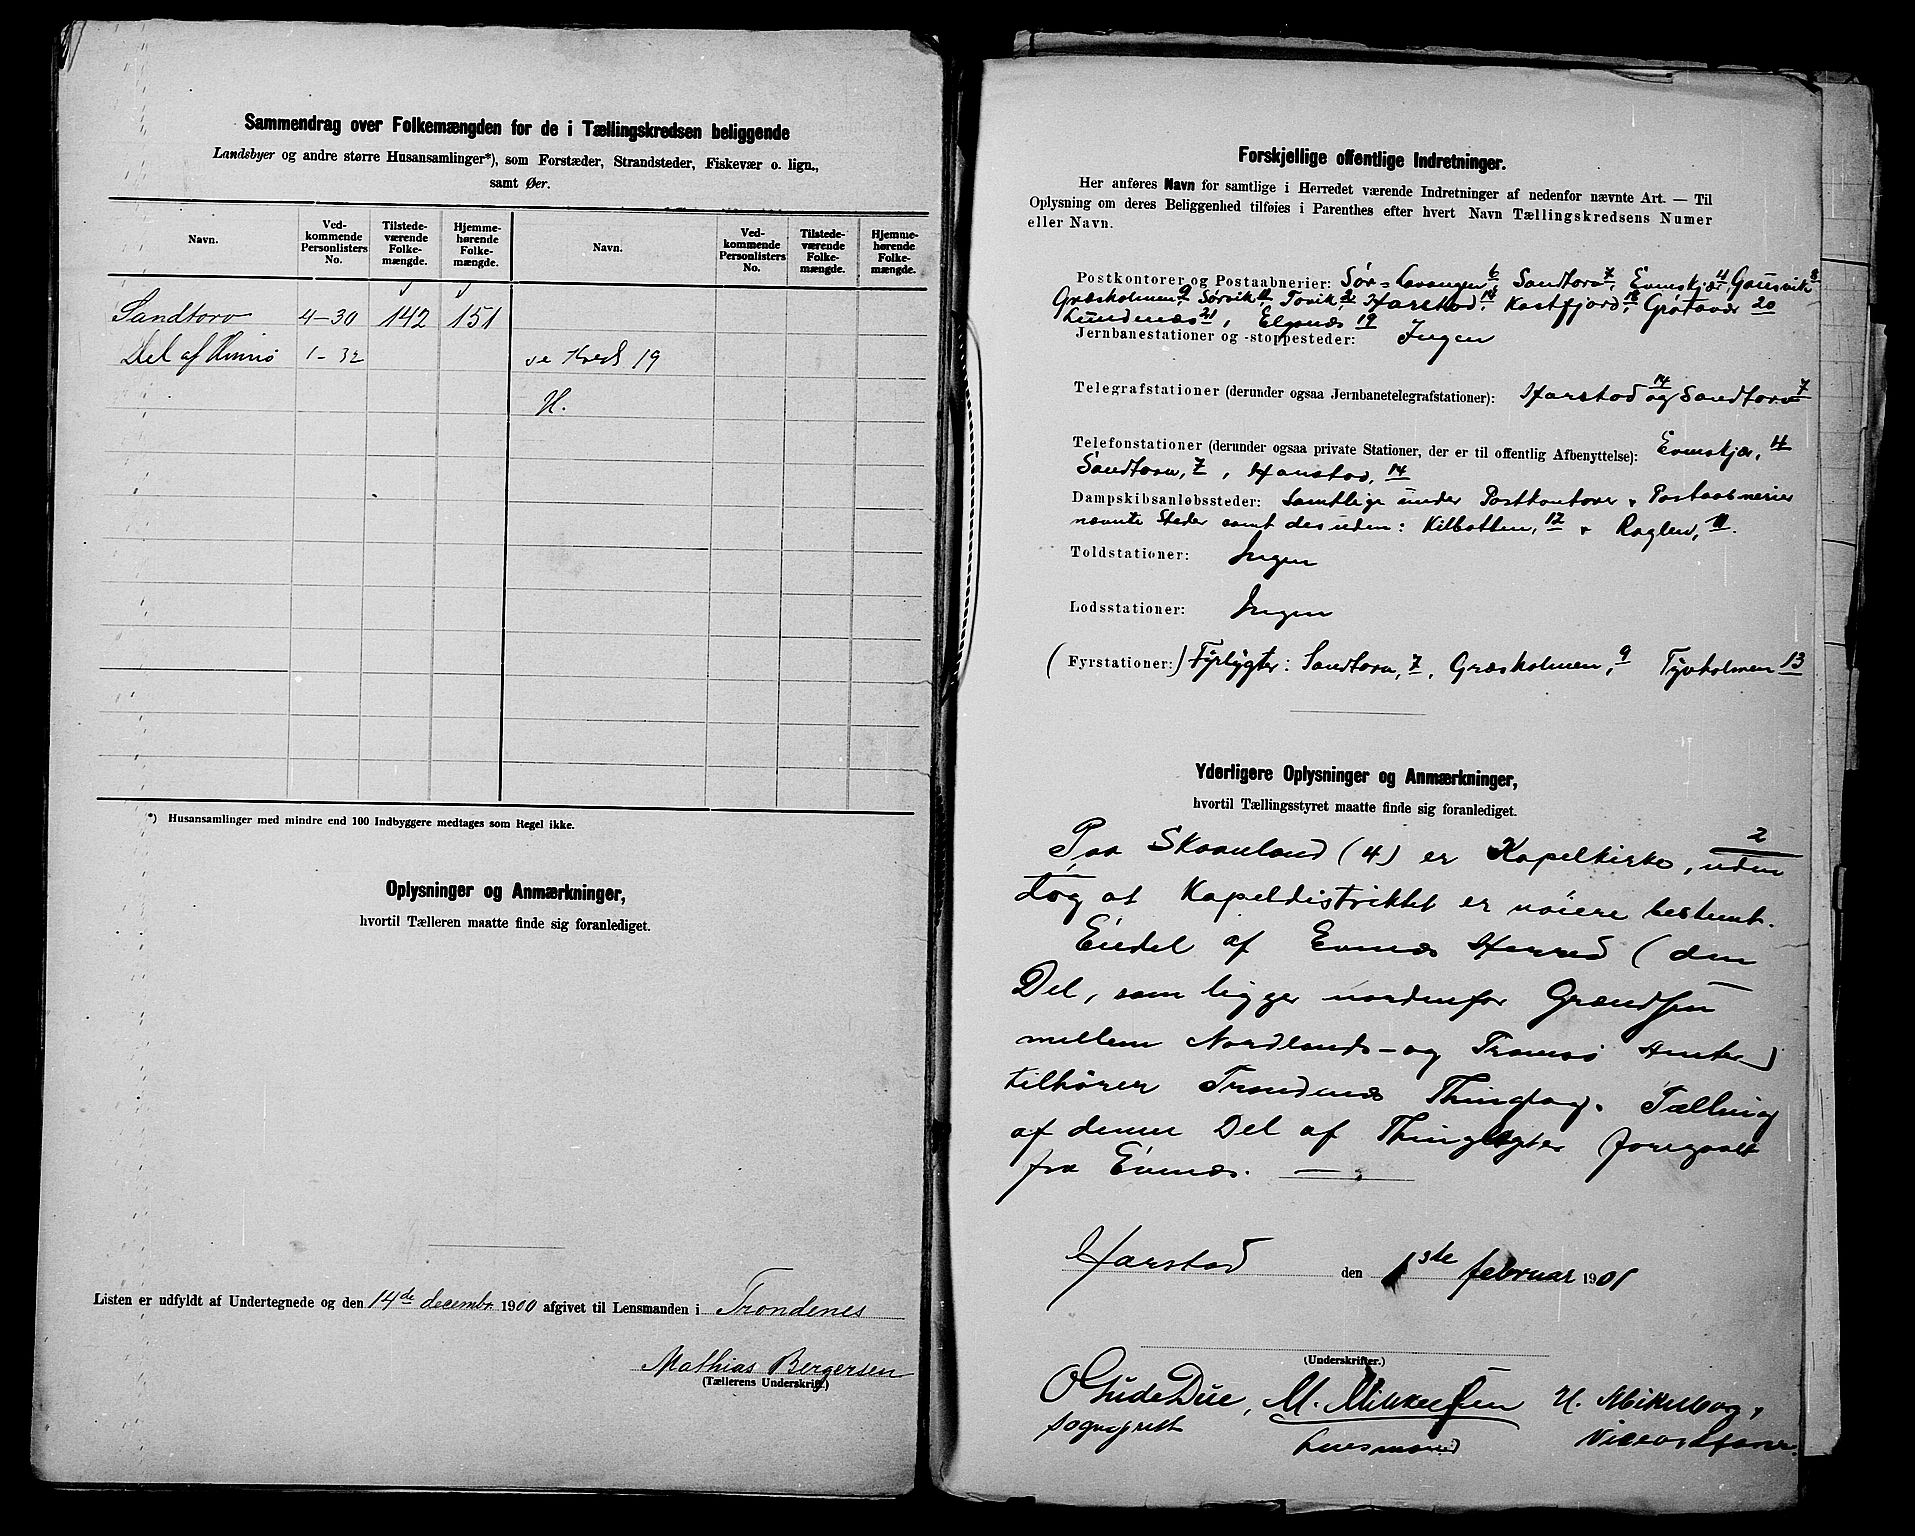 Sammendrag over Folkemængden for de i Tællingskredsen beliggende
Landsbyer og andre større Husansamlinger*), som Forstæder, Strandsteder, Fiskevær o. lign.,
samt Øer.
Navn. Ved-kommende Personlisters No. Tilstede-værende Folke-mængde. Hjemme-hørende Folke-mængde. Navn. Ved-kommende Personlisters No. Tilstede-værende Folke-mængde. Hjemme-hørende Folke-mængde.
Sandtorv 4-30 142 151
Del af Hinnø 1-32 se Kreds 19
H.
*) Husansamlinger med mindre end 100 Indbyggere medtages som Regel ikke.
Oplysninger og Anmærkninger,
hvortil Tælleren maatte finde sig foranlediget.
Listen er udfyldt af Undertegnede og den 14de decembr. 1900 afgivet til Lensmanden i Trondenes
Mathias Bergersen
(Tællerens Underskrift.)
Forskjellige offentlige Indretninger.
Her anføres Navn for samtlige i Herredet værende Indretninger af nedenfor nævnte Art. — Til
Oplysning om deres Beliggenhed tilføies i Parenthes efter hvert Navn Tællingskredsens Numer
eller Navn.
Postkontorer og Postaabnerier: Sør-Lavangen 6, Sandtorv 7, Evenskjær 4, Gausvik 8
Græsholmen 9, Sørvik 11, Tovik 2, Harstad 14, Kastfjord 18, Grøtavær 20
Lundenæs 21, Elgsnæs 19
Jernbanestationer og -stoppesteder: Ingen
Telegrafstationer (derunder ogsaa Jernbanetelegrafstationer): Harstad 14 og Sandtorv 7
Telefonstationer (derunder ogsaa private Stationer, der er til offentlig Afbenyttelse): Evenskjær, 4
Sandtorv, 7, Harstad, 14
Dampskibsanløbssteder: Samtlige under Postkontorer & Postaabnerier
nævnte Steder samt desuden: Kilbotten, 12 & Roglen, 11.
Toldstationer: Ingen
Lodsstationer: Ingen
(Fyrstationer:) Fyrlygter: Sandtorv, 7, Græsholmen, 9 Tyvholmen 13
Yderligere Oplysninger og Anmærkninger,
hvortil Tællingsstyret maatte finde sig foranlediget.
2
Paa Skaanland (4) er Kapelkirke, uden
dog at Kapeldistriktet er nøiere bestemt.
Endel af Evenæs Herred (den
Del, som ligger nordenfor Grændsen
mellem Nordlands- og Tromsø Amter)
tilhører Trondenæs Thinglag. Tælling
af denne Del af Thinglaget foregaaet
fra Evenæs.
Harstad den 1ste februar 1901
(Underskrifter.)
O Gude Due, M. Mikkelsen H. Mikelborg,
sogneprest Lensmand Viceordfører.